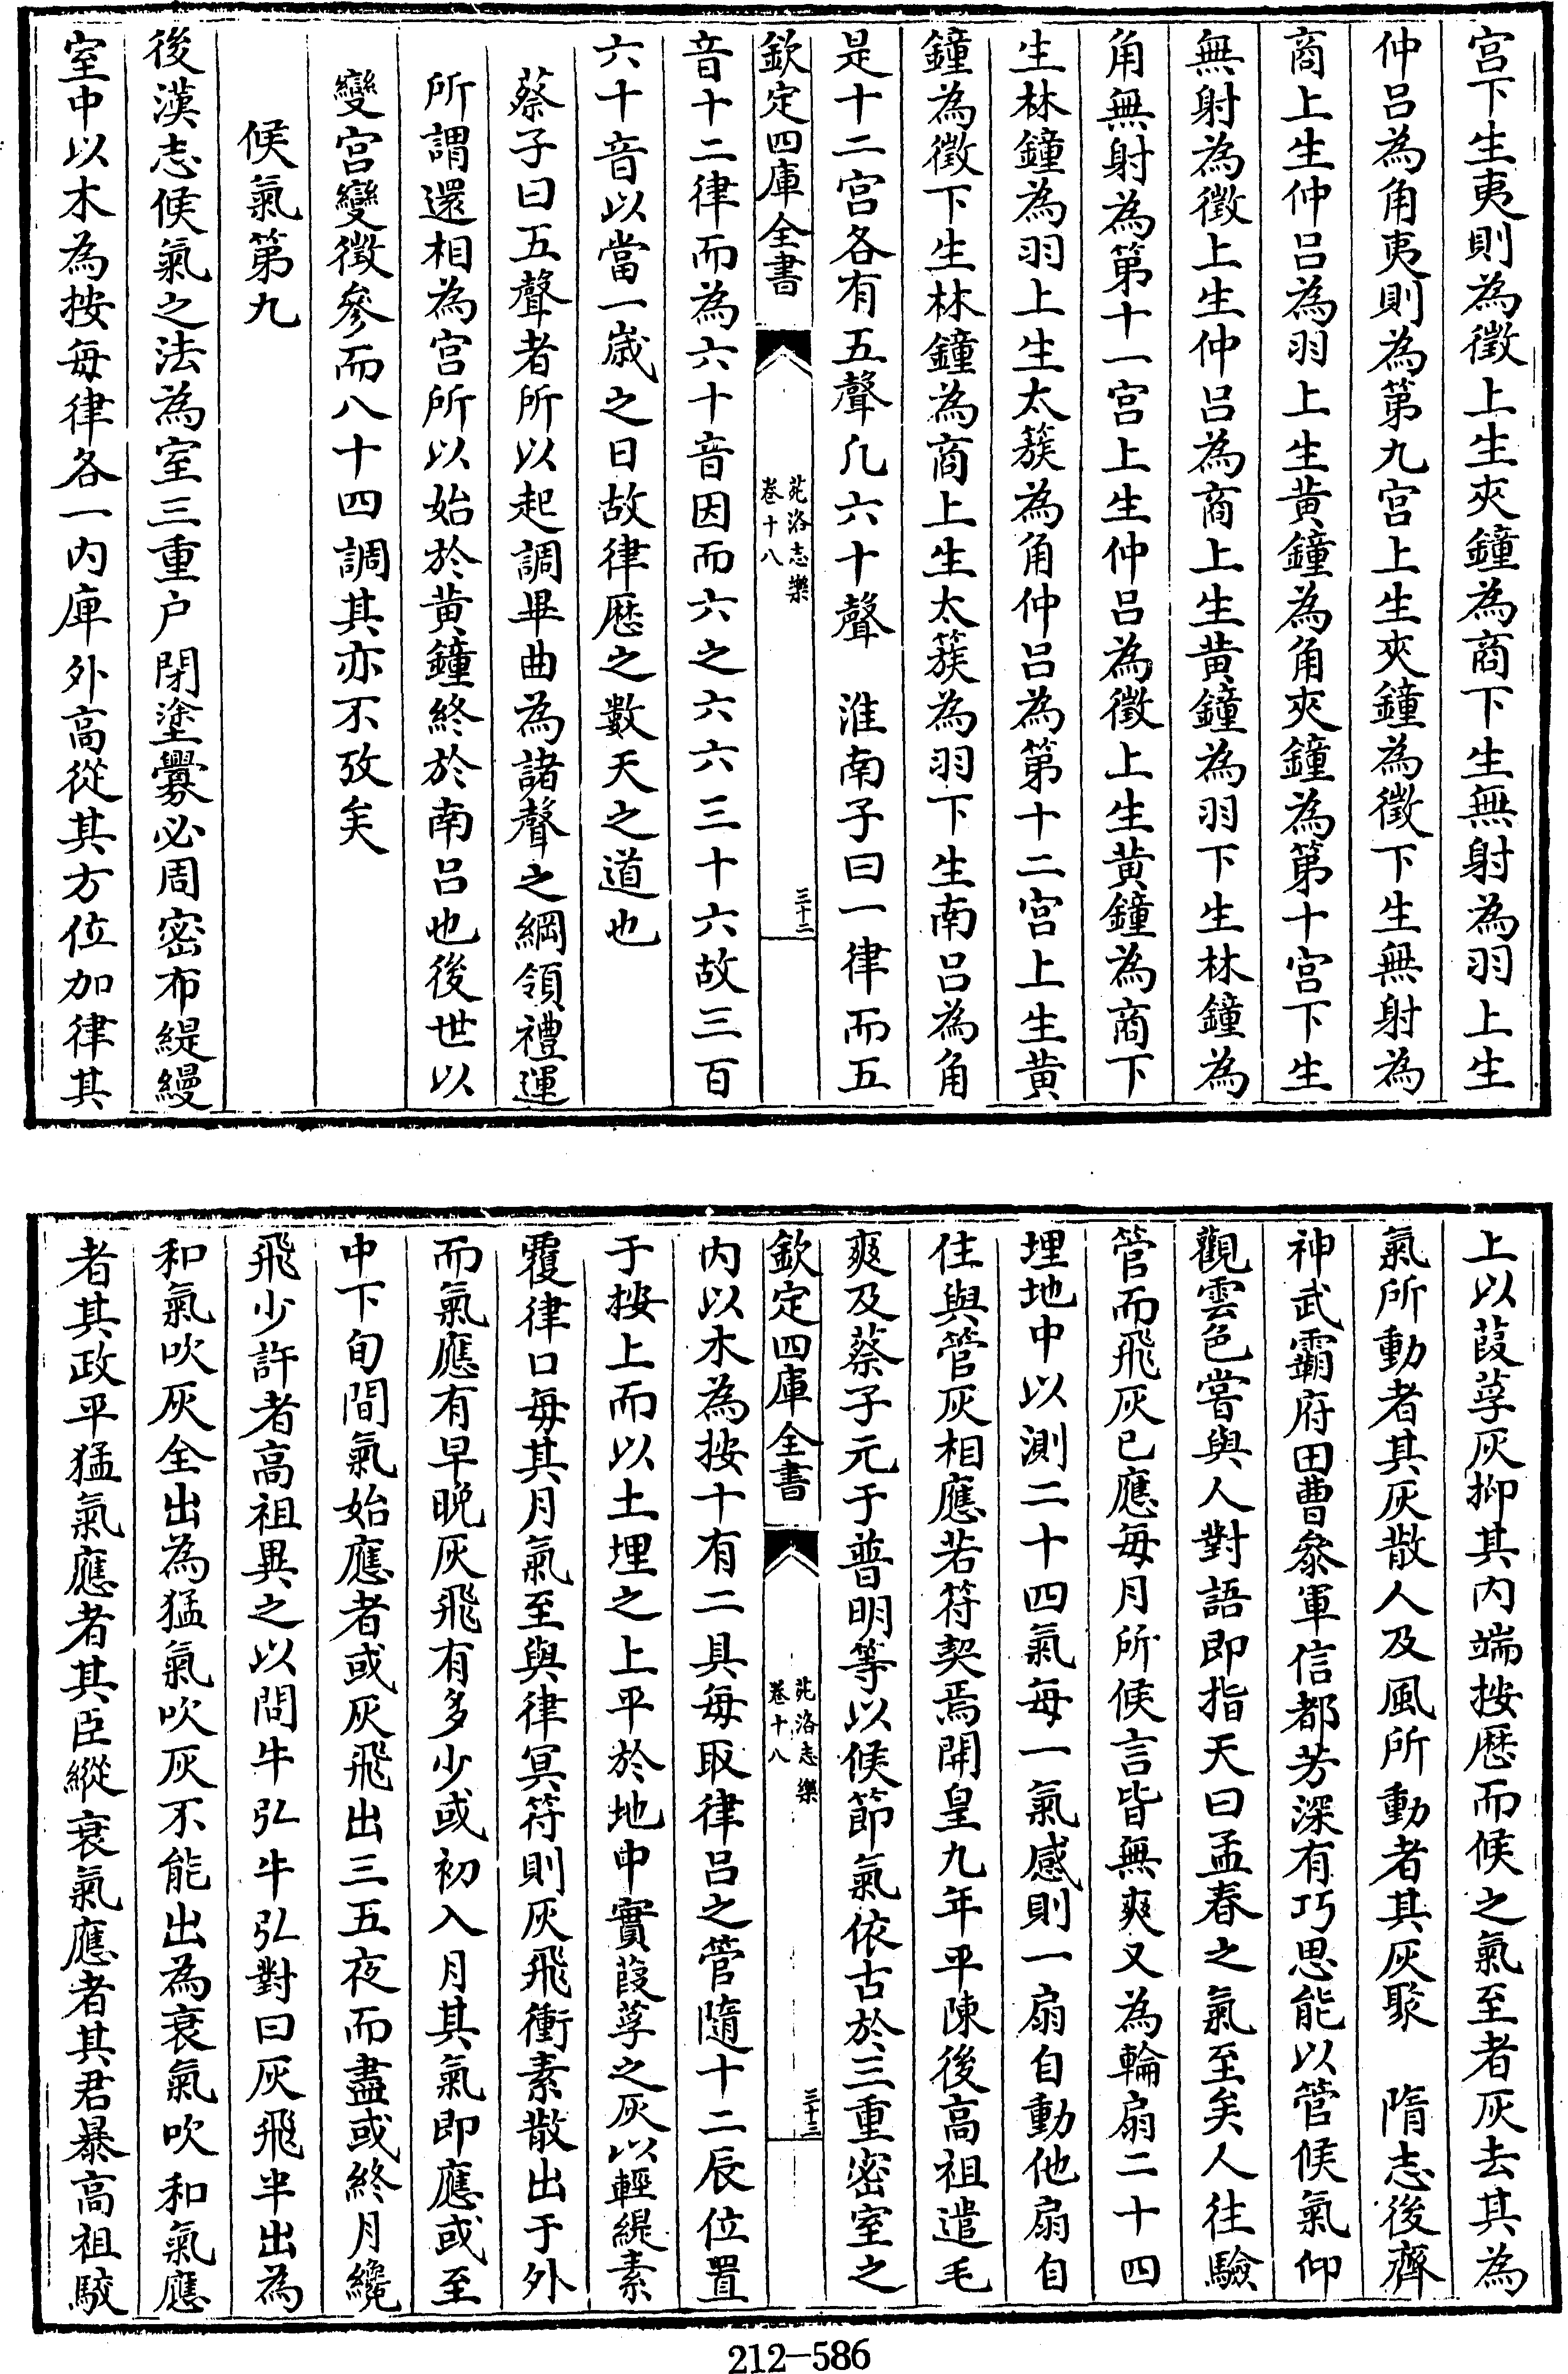 宫下生夷則為徵上生夾鐘為商下生無射為羽上生
仲吕為角夷則為第九宫上生夾鐘為徵下生無射為
商上生仲吕為羽上生黄鐘為角夾鐘為第十宫下生
無射為徵上生仲吕為商上生黄鐘為羽下生林鐘為
角無射為第十一宫上生仲吕為徵上生黄鐘為商下
生林鐘為羽上生太簇為角仲吕為第十二宫上生黄
鐘為徵下生林鐘為商上生太簇為羽下生南吕為角
是十二宫各有五聲凡六十聲　淮南子曰一律而五
欽定四庫全書
苑洛志樂
卷十八
三十二
音十二律而為六十音因而六之六六三十六故三百
六十音以當一嵗之日故律厯之數天之道也
蔡子曰五聲者所以起調畢曲為諸聲之綱領禮運
所謂還相為宫所以始於黄鐘終於南吕也後世以
變宫變徵參而八十四調其亦不攷矣
候氣第九
後漢志候氣之法為室三重户閉塗釁必周密布緹縵
室中以木為按每律各一内庳外高從其方位加律其
上以葭莩灰抑其内端按厯而候之氣至者灰去其為
氣所動者其灰散人及風所動者其灰聚　隋志後齊
神武霸府田曹參軍信都芳深有巧思能以管候氣仰
觀雲色嘗與人對語即指天曰孟春之氣至矣人往驗
管而飛灰已應每月所候言皆無爽又為輪扇二十四
埋地中以測二十四氣每一氣感則一扇自動他扇自
住與管灰相應若符契焉開皇九年平陳後高祖遣毛
爽及蔡子元于普明等以候節氣依古於三重密室之
欽定四庫全書
苑洛志樂
卷十八
三十三
内以木為按十有二具每取律吕之管隨十二辰位置
于按上而以土埋之上平於地中實葭莩之灰以輕緹素
覆律口每其月氣至與律冥符則灰飛衝素散出于外
而氣應有早晚灰飛有多少或初入月其氣即應或至
中下旬間氣始應者或灰飛出三五夜而盡或終月纔
飛少許者高祖異之以問牛弘牛弘對曰灰飛半出為
和氣吹灰全出為猛氣吹灰不能出為衰氣吹和氣應
者其政平猛氣應者其臣縱衰氣應者其君暴高祖駮
212—586